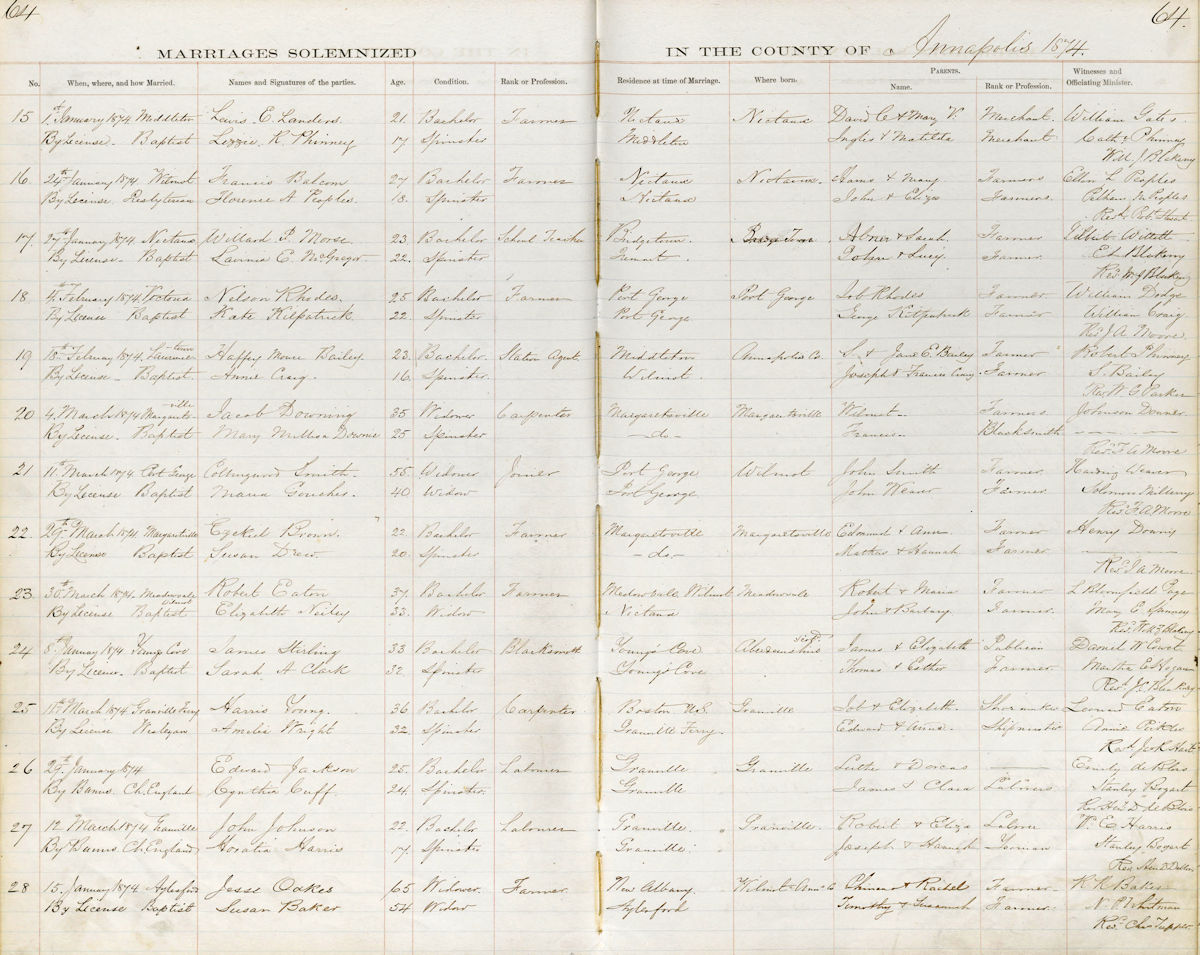 64
64.
MARRIAGES SOLEMNIZED IN THE COUNTY OF Annapolis 1874.
No. When, where, and how Married. Names and Signatures of the parties. Age. Condition. Rank or Profession. Residence at time of Marriage. Where born. PARENTS. Name. Rank or Profession. Witnesses and Officiating Minister.
15 1st January 1874 Middleton Lewis E. Landers. 21 Bachelor Farmer Nictaux Nictaux David C & Mary V. Merchant. William Gates.
By License. Baptist Lizzie R. Phinney 17 Spinster Middleton Ingles & Matilda Merchant Phinney
Will J Blakeny
16 January 1874 Wilmot Francis Balcom 27 Bachelor Farmer Nictaux Nictaux. & Mary Farmers Ellen L Peoples
By License. Presbyterian Florence A Peoples. 18. Spinster Nictaux John & Eliza Farmers. Peoples
Revd
17. 27th January 1874 Nictaux Willard P. Morse. 23. Bachelor School Teacher Bridgetown. Bridge Town Abner & Sarah. Farmer Willett
By License. Baptist E. McGregor 22. Spinster & Lucy. Farmer. Blakeny
Rev. Wm J Blakeny
18 February 1874 Victoria Nelson Rhodes. 25 Bachelor Farmer Port George Port George Job Rhodes Farmer. William Dodge
By License Baptist Kate Kilpatrick 22. Spinster Port George George Kilpatrick Farmer William Craig
Rev J A Moore.
19 18th February 1874, Lawrencetown Haffey Bailey 23. Bachelor. Station Agent. Middleton Annapolis Co. S. & Jane E. Bailey Farmer Robert Phinney
By License. Baptist. Annie Craig. 16. Spinster. Wilmot. Joseph & Francis Craig. Farmer S. Bailey
Rev W. G Parker
20 4. March 1874 Margaretville Jacob Downing 35 Widower Carpenter Margaretsville Margaretsville Wilmot Farmers Johnson
By License. Baptist Mary Downie 25 Spinster —do— Francis Blacksmith
Rev F. A Moore
21 11th March 1874 Port George Collingwood Smith. 55 Widower Joiner Port George Wilmot John Smith Farmer Harding Weaver
By License Baptist Maria Goucher. 40 Widow Port George John Weaver Farmer. Solomon
Rev. F. A Moore
22 29th March 1874. Margaretville Ezekiel Brown. 22 Bachelor Farmer Margaretsville Margaretsville Edmund & Ann Farmer Henry Downy
By License Baptist Susan Drew 20. Spinster —do— & Hannah Farmer
Rev. F. A. Moore
23 30th March 1874. Meadowvale Wilmot Robert Eaton 37. Bachelor Farmer Meadowvale Wilmot Meadowvale Robert & Maria Farmer L Blomfield Page
By License Baptist Elizabeth Neiley 33. Widow Nictaux John & Farmer. Mary E.
Rev.
24 8th January 1874 Youngs Cove James Stirling 33 Bachelor Blacksmith Youngs Cove Aberdeenshire Scotd James & Elizabeth Publican Daniel W
By License. Baptist Sarah A Clark 32 Spinster Youngs Cove Thomas & Esther Farmer. Martha E Hogan
Revd
25 11th March 1874. Granville Ferry Harris Young. 36 Bachelor Carpenter Boston U.S. Granville Job & Elizabeth. Shoemaker Leonard Eaton
By License Wesleyan Amelia Wright 32. Spinster Granville Ferry. Edward & Anna.
Revd Hart
26 29th January 1874 Edward Jackson 25. Bachelor Labourer Granville Granville & Dorcas
By Banns. Ch. England Cynthia Cuff 24. Spinster. Granville James & Clara Labourer Stanley Bogart
27 12 March 1874 Granville John Johnson 22. Bachelor Labourer Granville. Granville. Robert & Eliza W. E Harris
By Banns. Ch. England Horatia Harris 17 Spinster Granville Joseph & Hannah Stanley Bogart
28 15. January 1874 Aylesford Jesse Oakes 65 Widower. Farmer. New Albany. Wilmot Ann Co & Rachel Farmer Baker
By License Baptist Susan Baker 54 Widow Aylesford Timothy & Farmer. Whitman
Rev. Chas Tupper